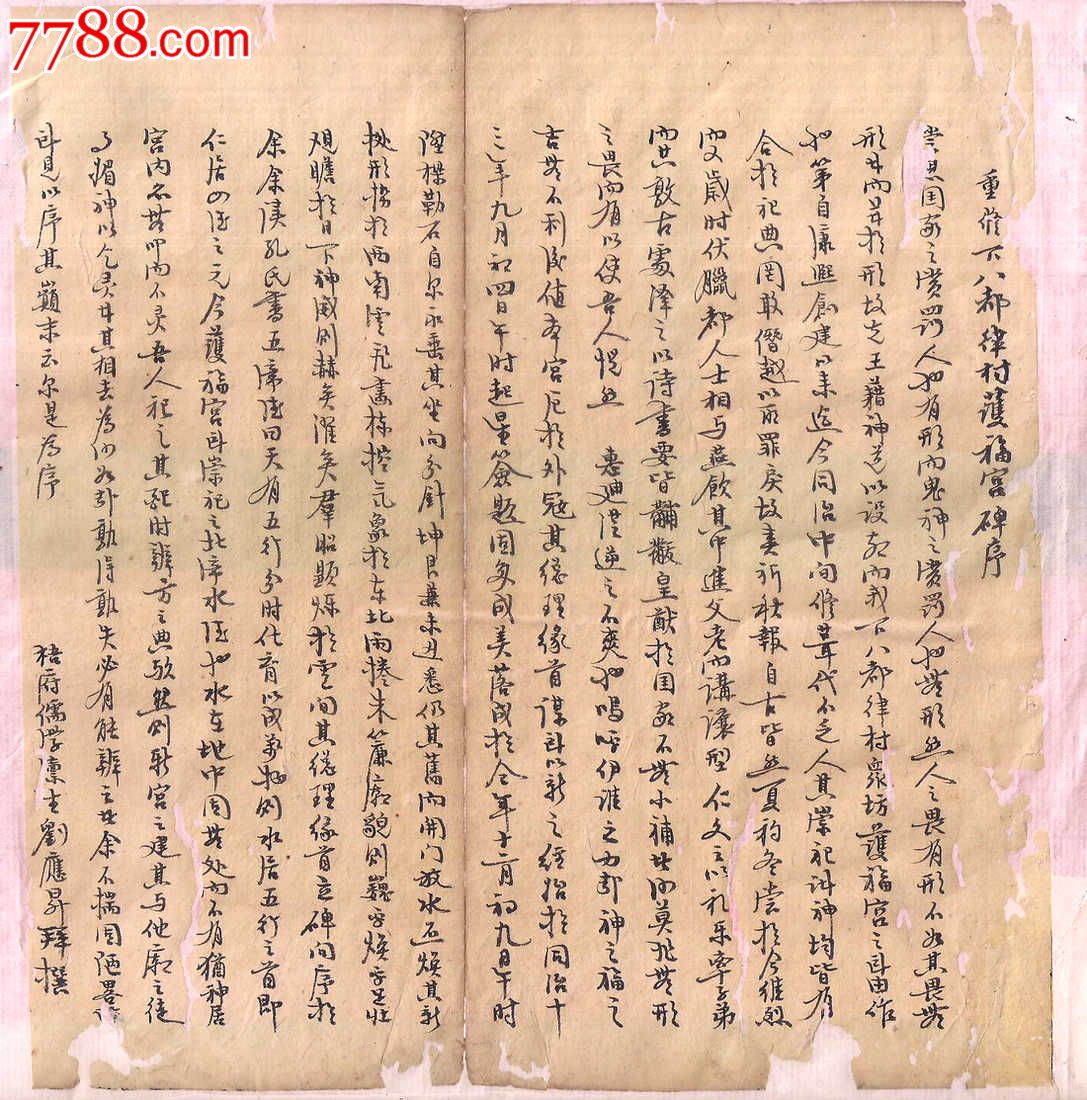 7788.com
重修下八都律村護福宮碑序
嘗思国家之賞罰人也有形而鬼神之賞罰人也無形然人之畏有形不如其畏無
形故先王藉神道以设教而我下八都律村衆坊護福宮之所由作
也第自康熙創建以来迄今同治中间修葺代不乏人其崇祀諸神均皆有
合於祀典罔敢僭越以取罪戾故春祈秋報自古皆然夏礿冬嘗於今維烈
而又歲时伏臘都人士相与燕飲其中進父老而講讓型仁文之以礼乐率子弟
而共敦古處泽之以诗書要皆黼黻皇猷於国家不無小補此何莫非無形
之畏而有以使吾人惕然 惠迪從逆之不爽也嗚呼伊谁之力即神之福之
吉無不利後值本宮厄於外冠其總理緣首谋所以新之经始於同治十
三年九月初四日午时起星簽题固多成美落成於今年十二月初九日午时
陞樑勒石自尔永垂其坐向分針坤艮兼未丑悉仍其舊而開门放水正焕其新
桃形揚於西南雲飛畫栋控氣象於东北雨捲朱簾廟貌则巍乎焕乎壯
观瞻於日下神威则赫矣濯矣羣昭顯烁於雲间其總理缘首立碑问序於
余余读孔氏書五帝德曰天有五行分时化育以成萬物则水居五行之首即
仁居四德之元今護福宮所崇祀之北帝水德也水在地中固無处而不有犹神居
宮内亦無叩而不灵吾人祀之其能昧辨方之典欤然则新宮之建其与他廟之徒
事媚神以乞灵者其相去為何如即孰得孰失必有能辨之者余不揣固陋畧
所見以序其巔末云尔是為序
梧府儒學廩生劉應昇拜撰